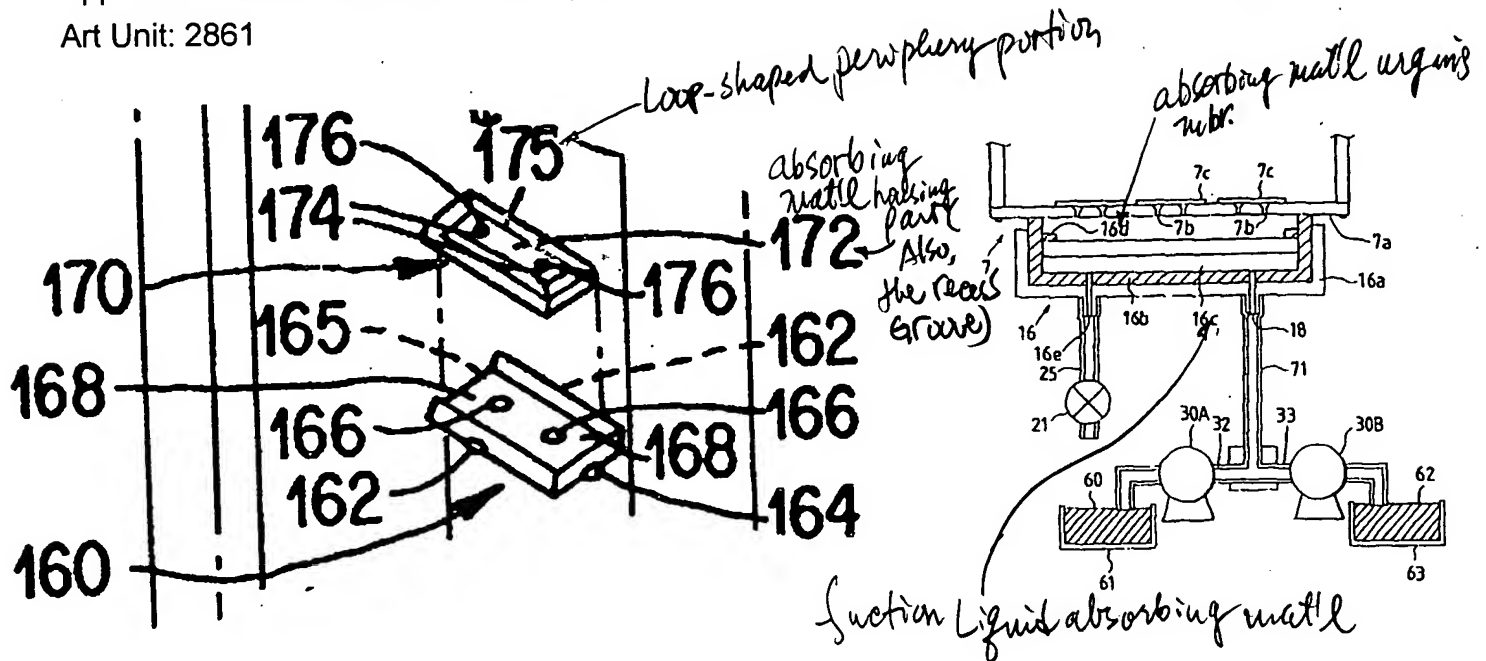 Art Unit: 2861
Loop-shaped periphery portion
absorbing mat'l urging
mbr.
176
175
174
absorbing
mat'l holding
part
Also,
the recess
groove)
172
176
170
165
162
168
166
166
168
162
164
160
7c
7c
16d
7b
7b
7a
7
16a
16
16b
16c
18
16e
25
71
21
30A
32
33
30B
60
62
61
63
Suction Liquid absorbing mat'l